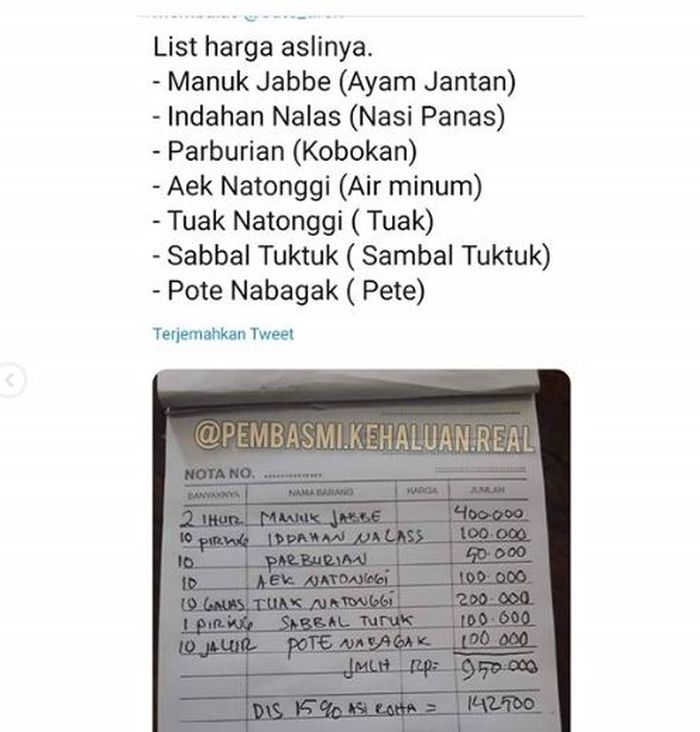 List harga aslinya.
- Manuk Jabbe (Ayam Jantan)
- Indahan Nalas (Nasi Panas)
- Parburian (Kobokan)
- Aek Natonggi (Air minum)
- Tuak Natonggi ( Tuak)
- Sabbal Tuktuk ( Sambal Tuktuk)
- Pote Nabagak ( Pete)
Terjemahkan Tweet
@PEMBASMI.KEHALUAN.REAL
NOTA NO. ..............
BANYAKNYA NAMA BARANG HARGA JUMLAH
2 IHUR MANUK JABBE 400.000
10 PIRING IDDAHAN NALASS 100.000
10 PARBURIAN 50.000
10 AEK NATONGGI 100.000
10 GALAS TUAK NATONGGI 200.000
1 PIRING SABBAL TUTUK 100.000
10 JALUR POTE NABAGAK 100.000
JMLH RP= 950.000
DIS 15% ASI ROHA = 142500